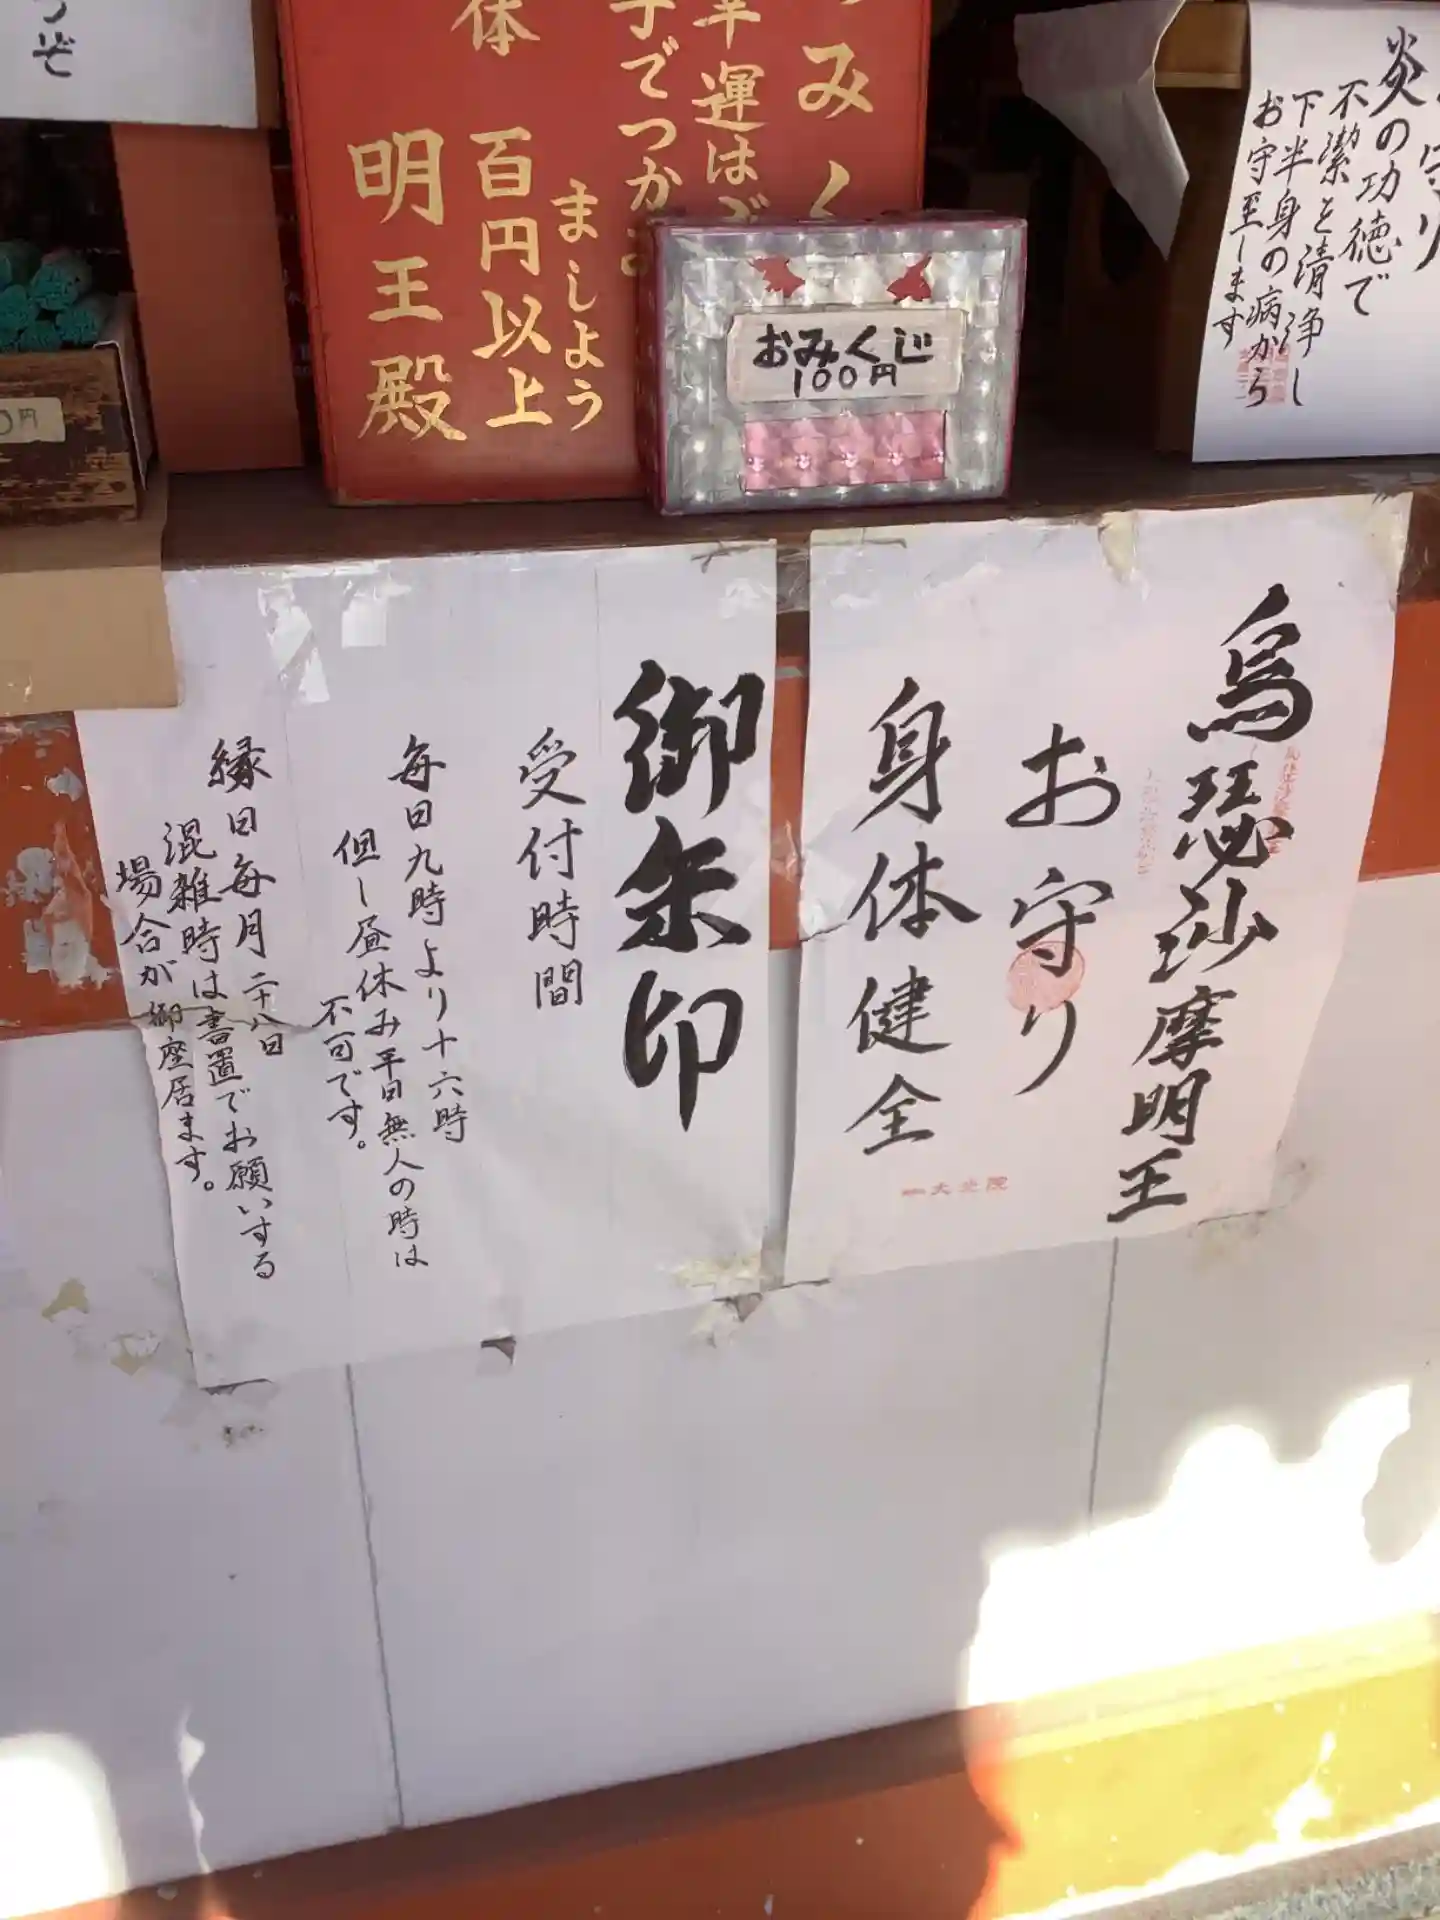 みく
幸運はご
子でつかみ
ましよう
百円以上
体
明王殿
おみくじ
100円
0円
守り
炎の功徳で
不潔を清浄し
下半身の病から
お守至します
烏瑟沙摩明王
お守り
身体健全
御朱印
受付時間
毎日九時より十六時
但し昼休み平日無人の時は
不可です。
縁日毎月二十八日
混雑時は書置でお願いする
場合が御座居ます。